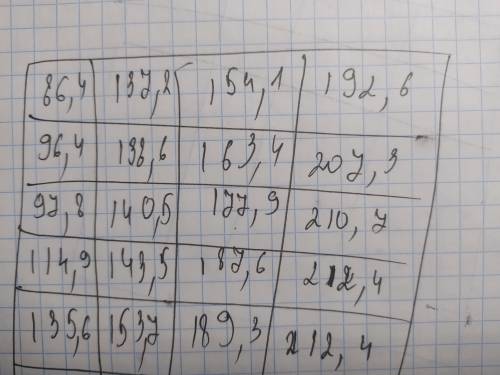 86,4 137,2 154,1 192,6
96,4 138,6 163,4 207,3
97,8 140,5 177,9 210,7
114,9 143,5 187,6 212,4
135,6 153,7 189,3 212,4